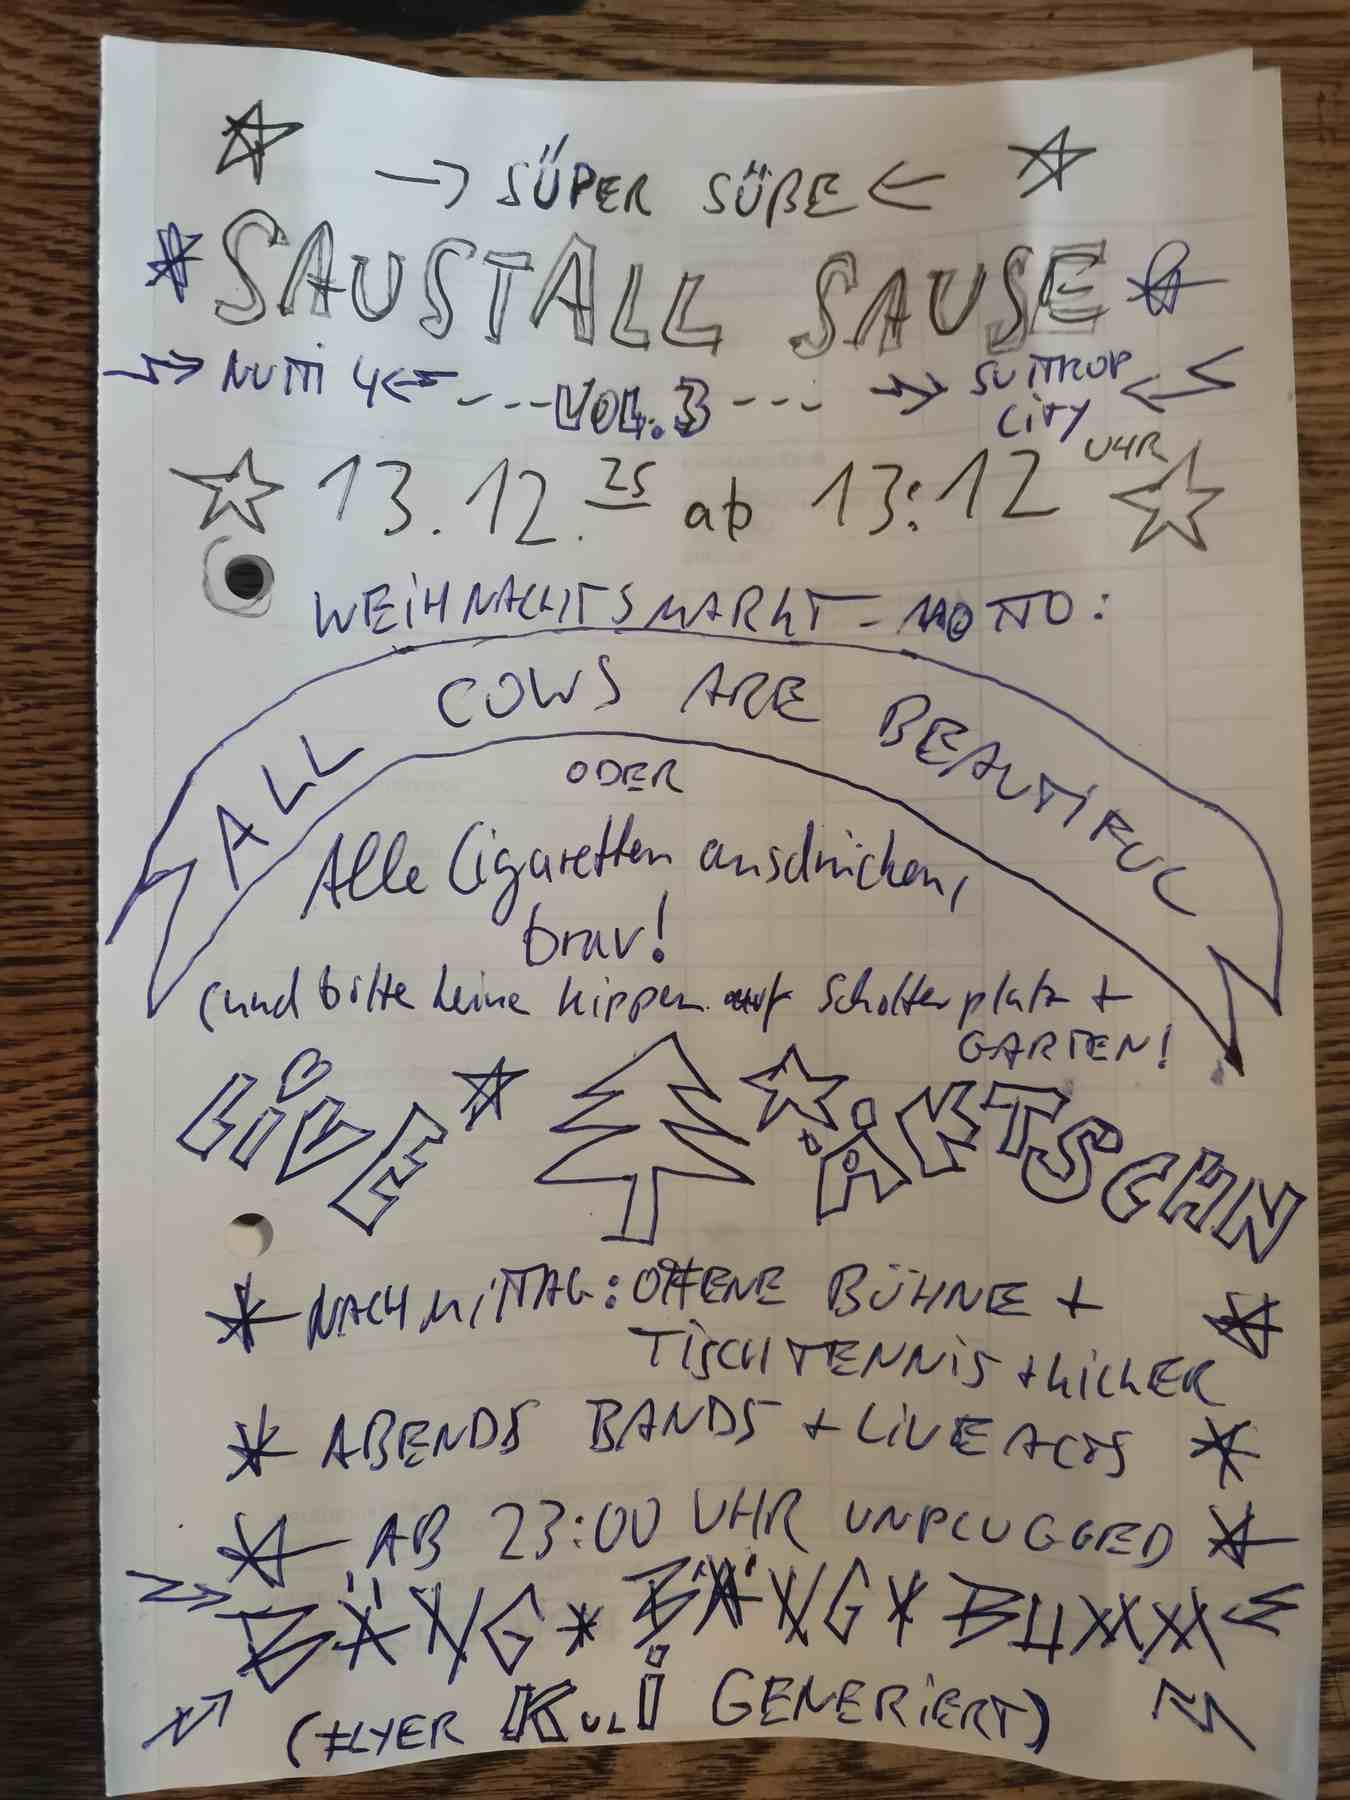 → SÜPER SÜẞE ←
SAUSTALL SAUSE
NUTTI 4 ---VOL.3--- SUTTROP CITY
13.12.25 ab 13:12 UHR
WEIHNACHTSMARKT-MOTTO:
ALL COWS ARE BEAUTIFUL
ODER
Alle Cigaretten ausdrücken,
brav!
(und bitte keine Kippen auf Schotterplatz +
GARTEN!
LIVE ÄKTSCHN
NACHMITTAG: OFFENE BÜHNE +
TISCHTENNIS + KICKER
ABENDS BANDS + LIVE ACTS
AB 23:00 UHR UNPLUGGED
BÄNG * BÄNG * BUMM
(FLYER KULI GENERIERT)